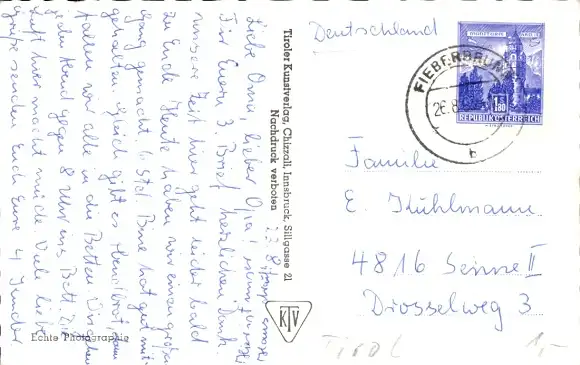 Deutschland
FIEBERBRUNN
26.8.
b
1.80
REPUBLIK ÖSTERREICH
Familie
E. Kühlmann
4816 Senne II
Drosselweg 3
Tirol
1,-
Tiroler Kunstverlag, Chizzali, Innsbruck, Sillgasse 21
Nachdruck verboten
KTV
Echte Photographie
Liebe Oma, lieber Opa!
Für Euern 3. Brief herzlichen Dank.
unsere Zeit hier geht leider bald
zu Ende. Heute haben wir einen großen
gang gemacht. 6 Std. Bine hat gut mit-
gehalten. Gleich gibt es Abendbrot, dann
fallen wir alle in die Betten.
jeden Abend gegen 8 Uhr ins Bett. Die
Luft hier macht müde. Viele liebe
Grüße senden Euch Eure 4 Kinder